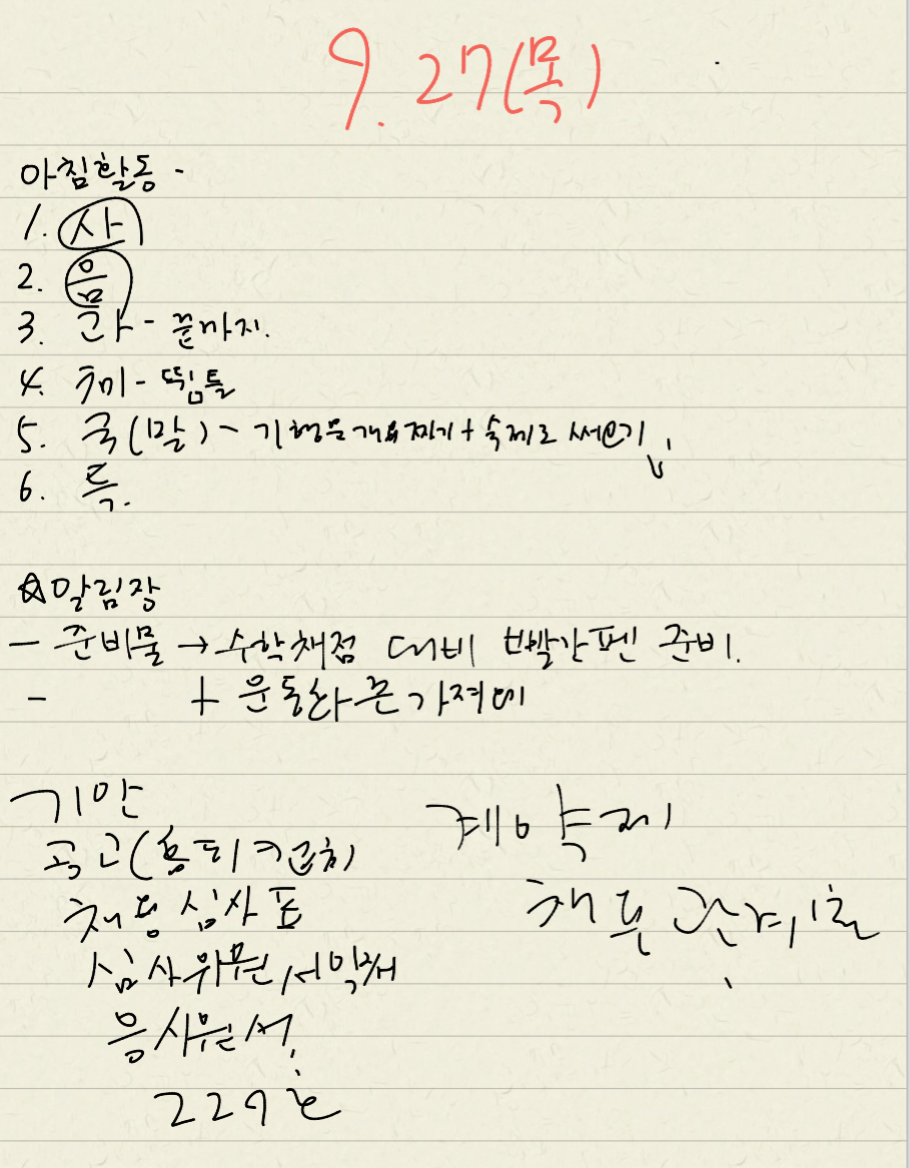 9. 27(목)
아침활동 -
1. 사
2. 음
3. 과 - 끝까지.
4. 체미 - 뜀틀
5. 국(말) - 기행문 개요짜기 + 숙제로 써오기
6. 특.
☆알림장
- 준비물 → 수학채점 대비 빨간펜 준비.
- + 운동화 끈 가져
기안
공고(홈피
채용심사표
심사위원 서약서
응사원서,
229
계약제
채용